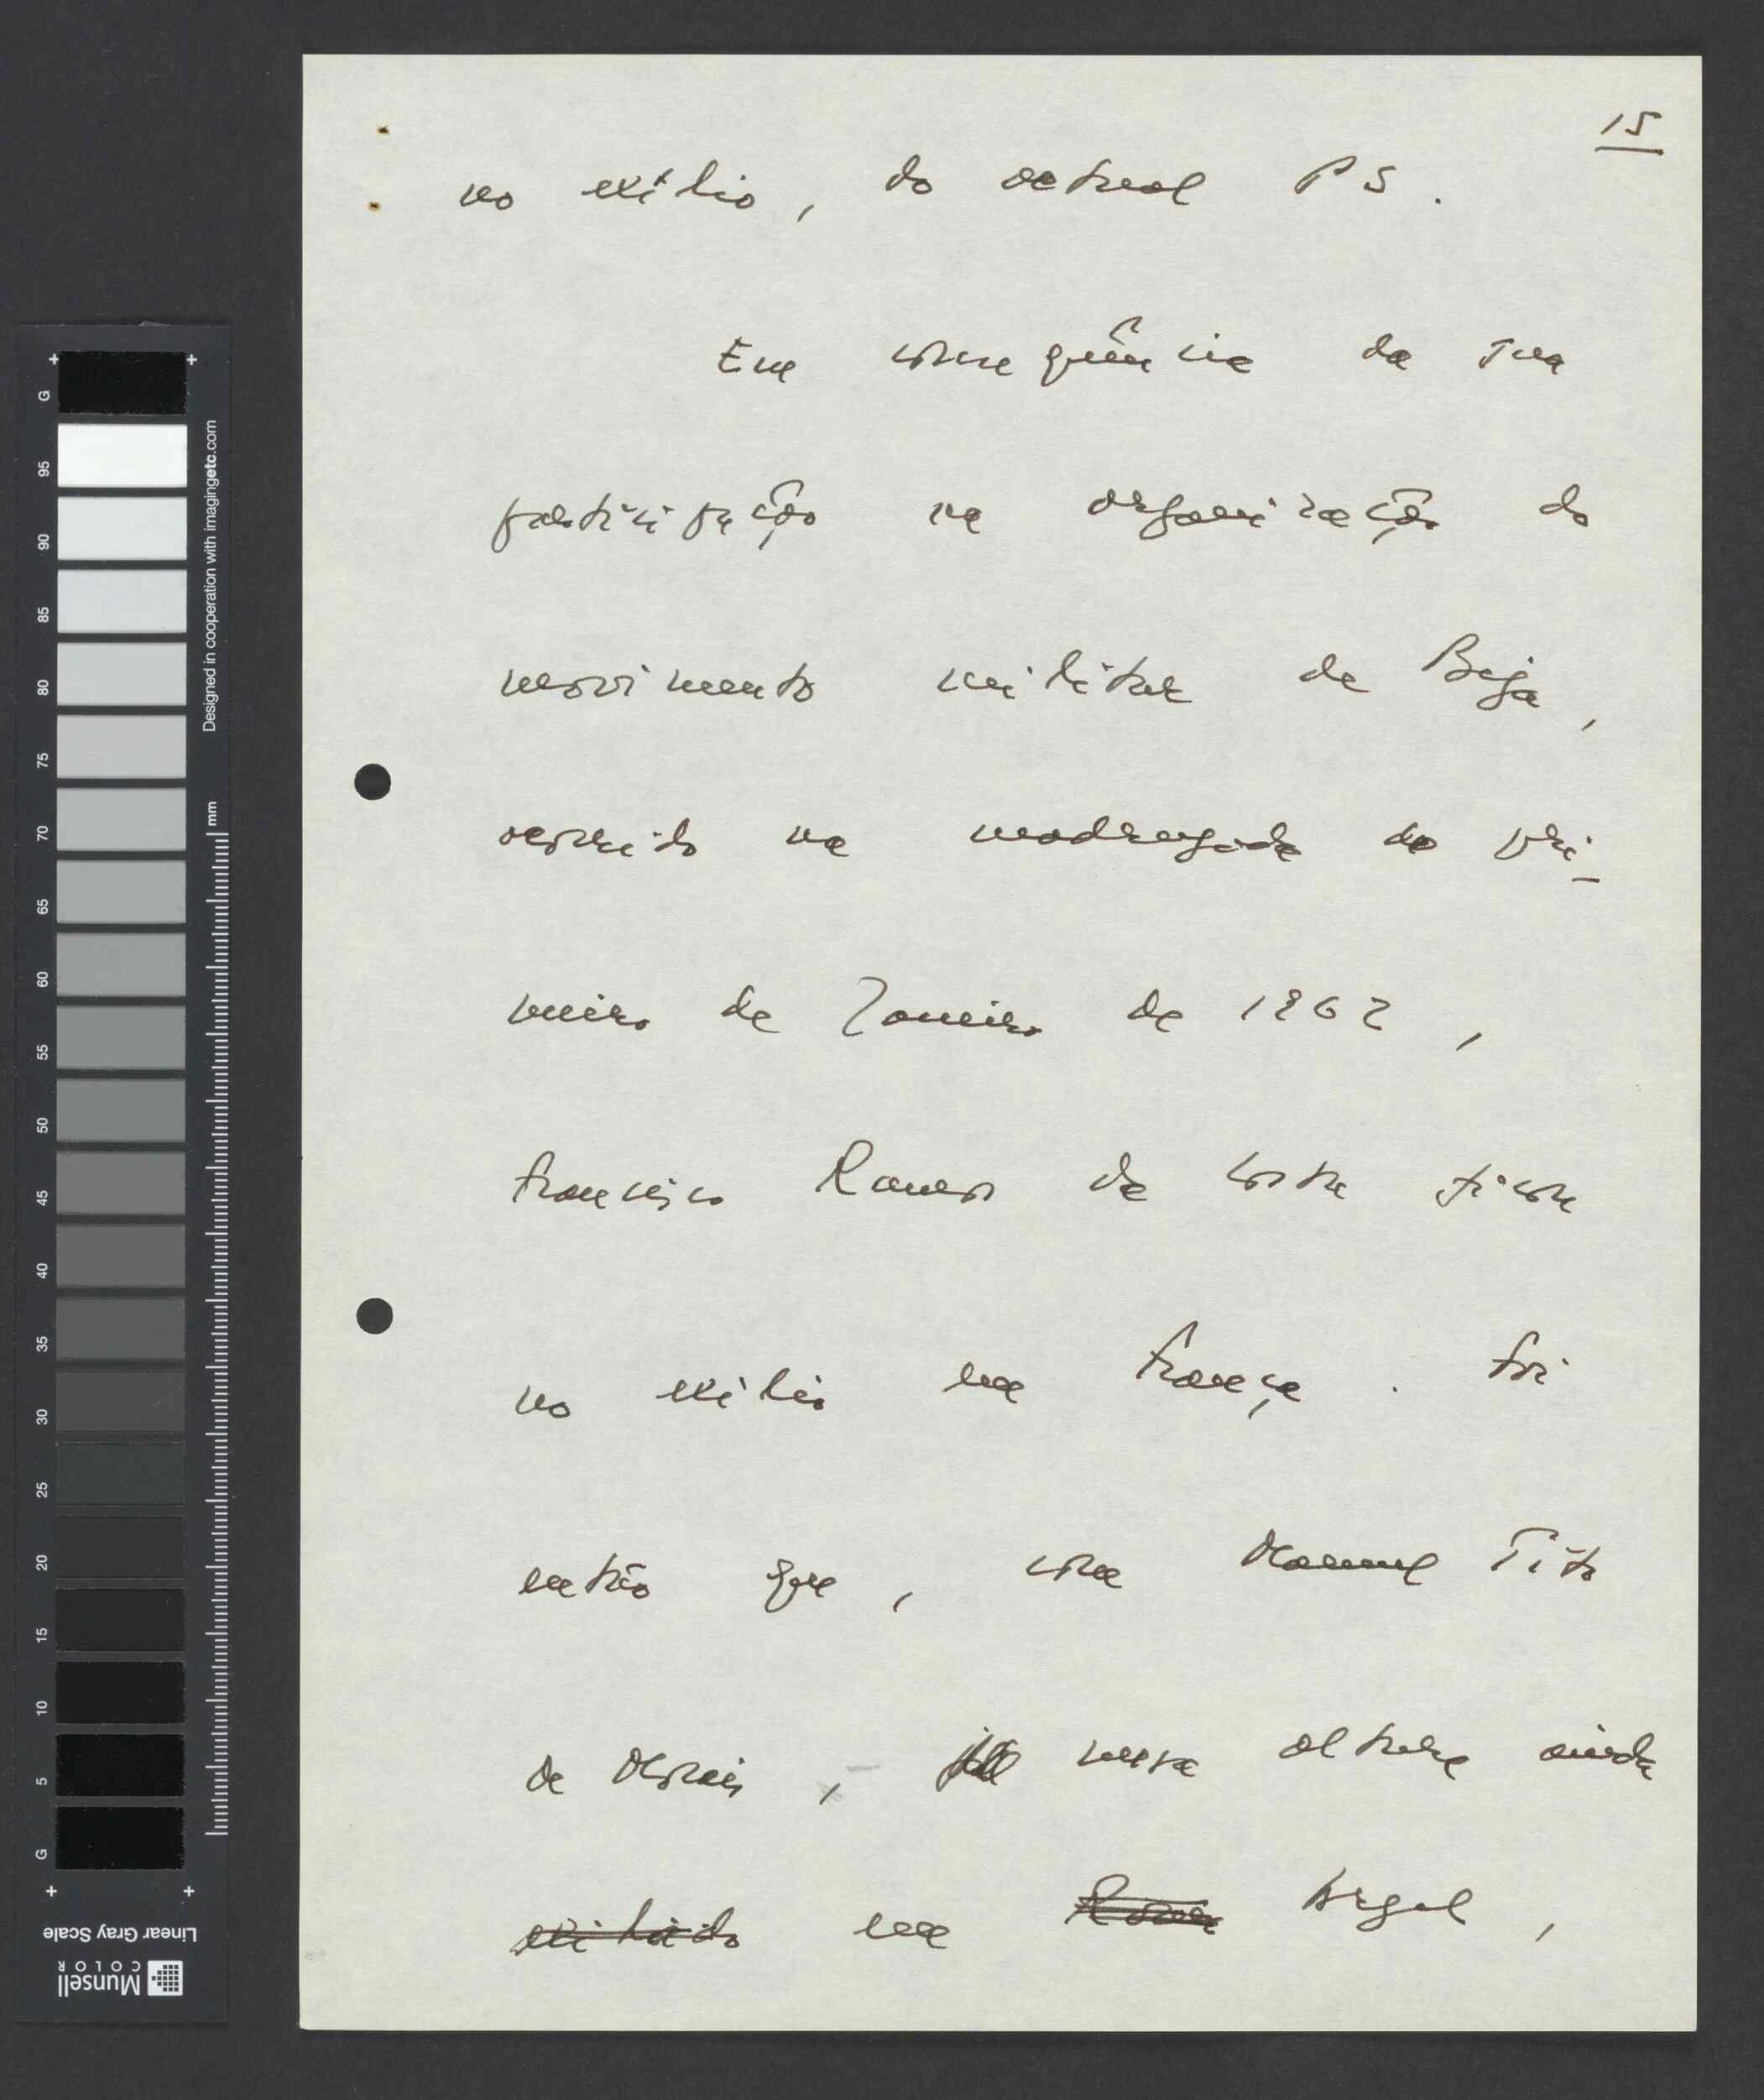 15
no exílio, do actual PS.
Em consequência da sua
participação na organização do
movimento militar de Beja,
ocorrido na madrugada do pri-
meiro de Janeiro de 1962,
Francisco Ramos da Costa ficou
no exílio em França. Foi
então que, com Manuel Tito
de Morais, nessa altura ainda
exilado em Roma Argel,
G 95 90 85 80 75 70 65 60 55 50 45 40 35 30 25 20 15 10 5 G
Designed in cooperation with imagingetc.com
mm
Linear Gray Scale
Munsell
COLOR